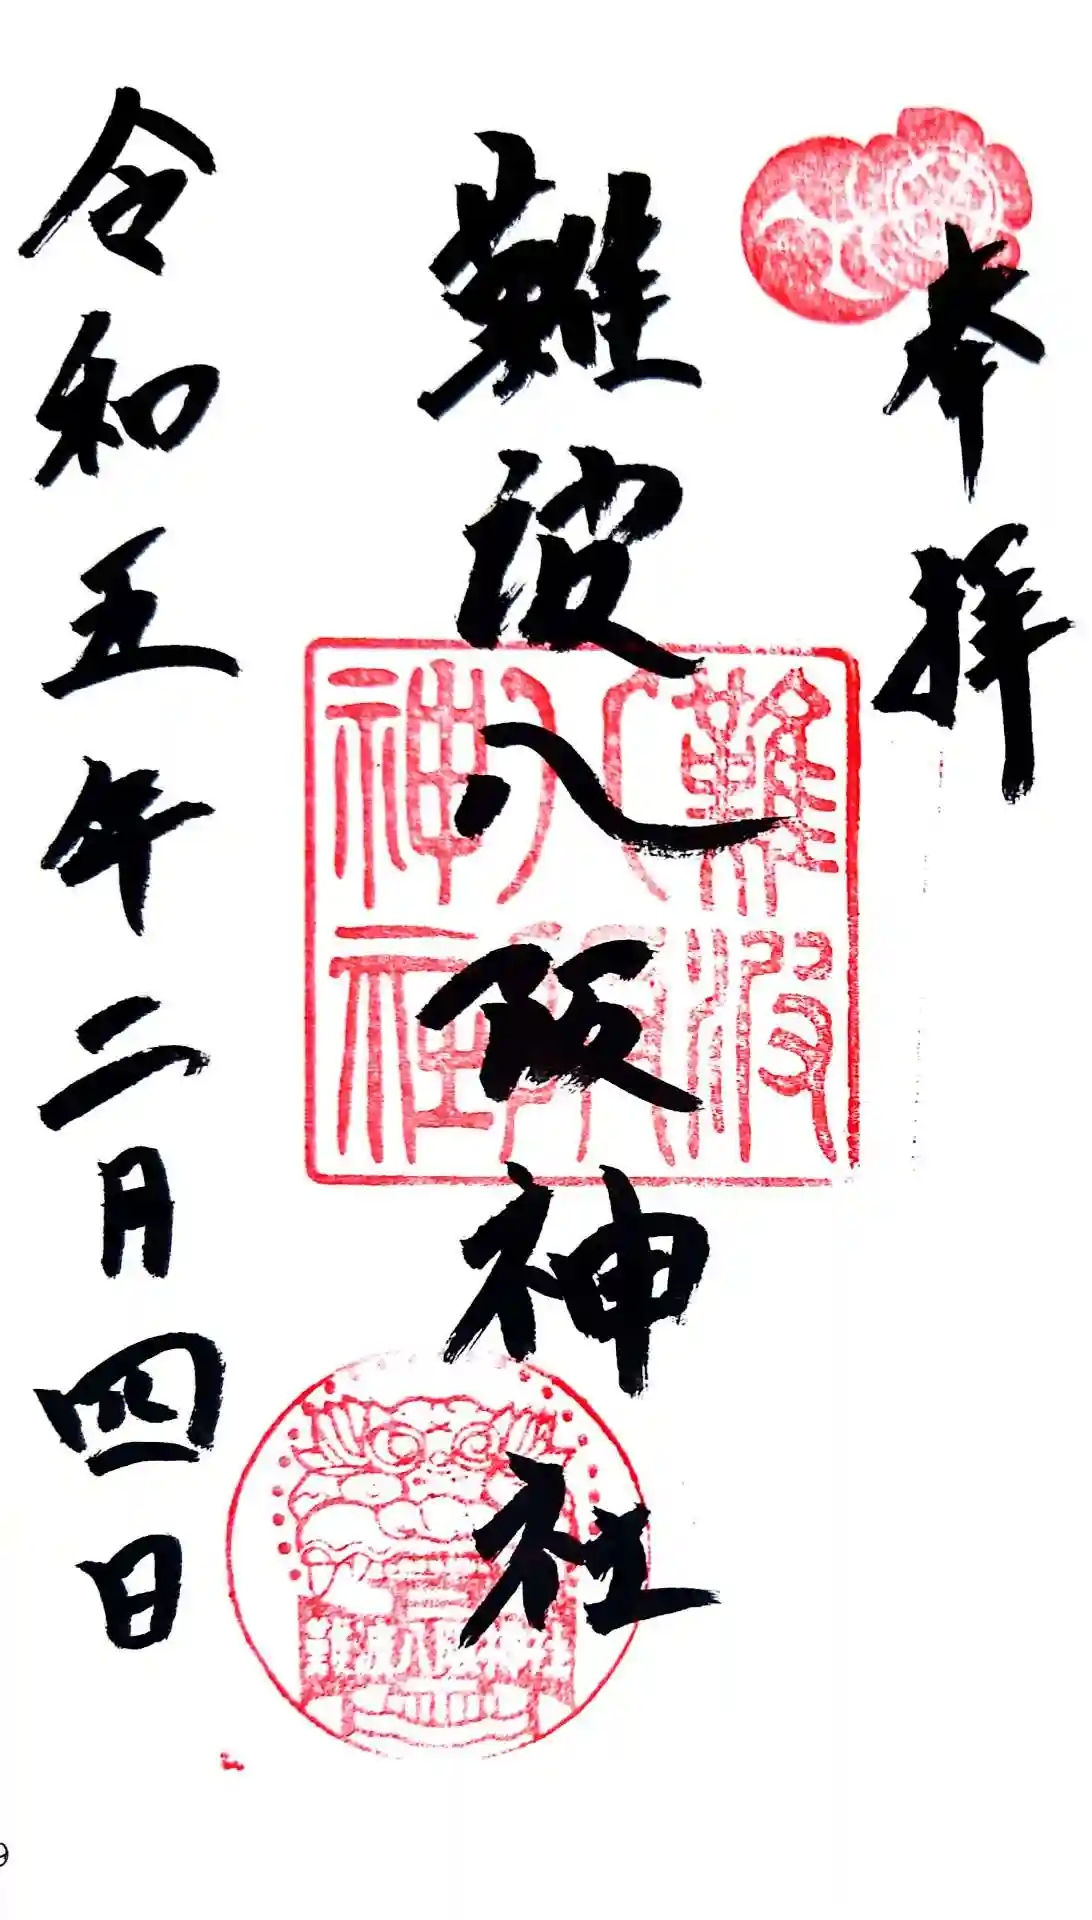 奉拝
難波八阪神社
難波
八阪
神社
難波八阪神社
令和五年二月四日